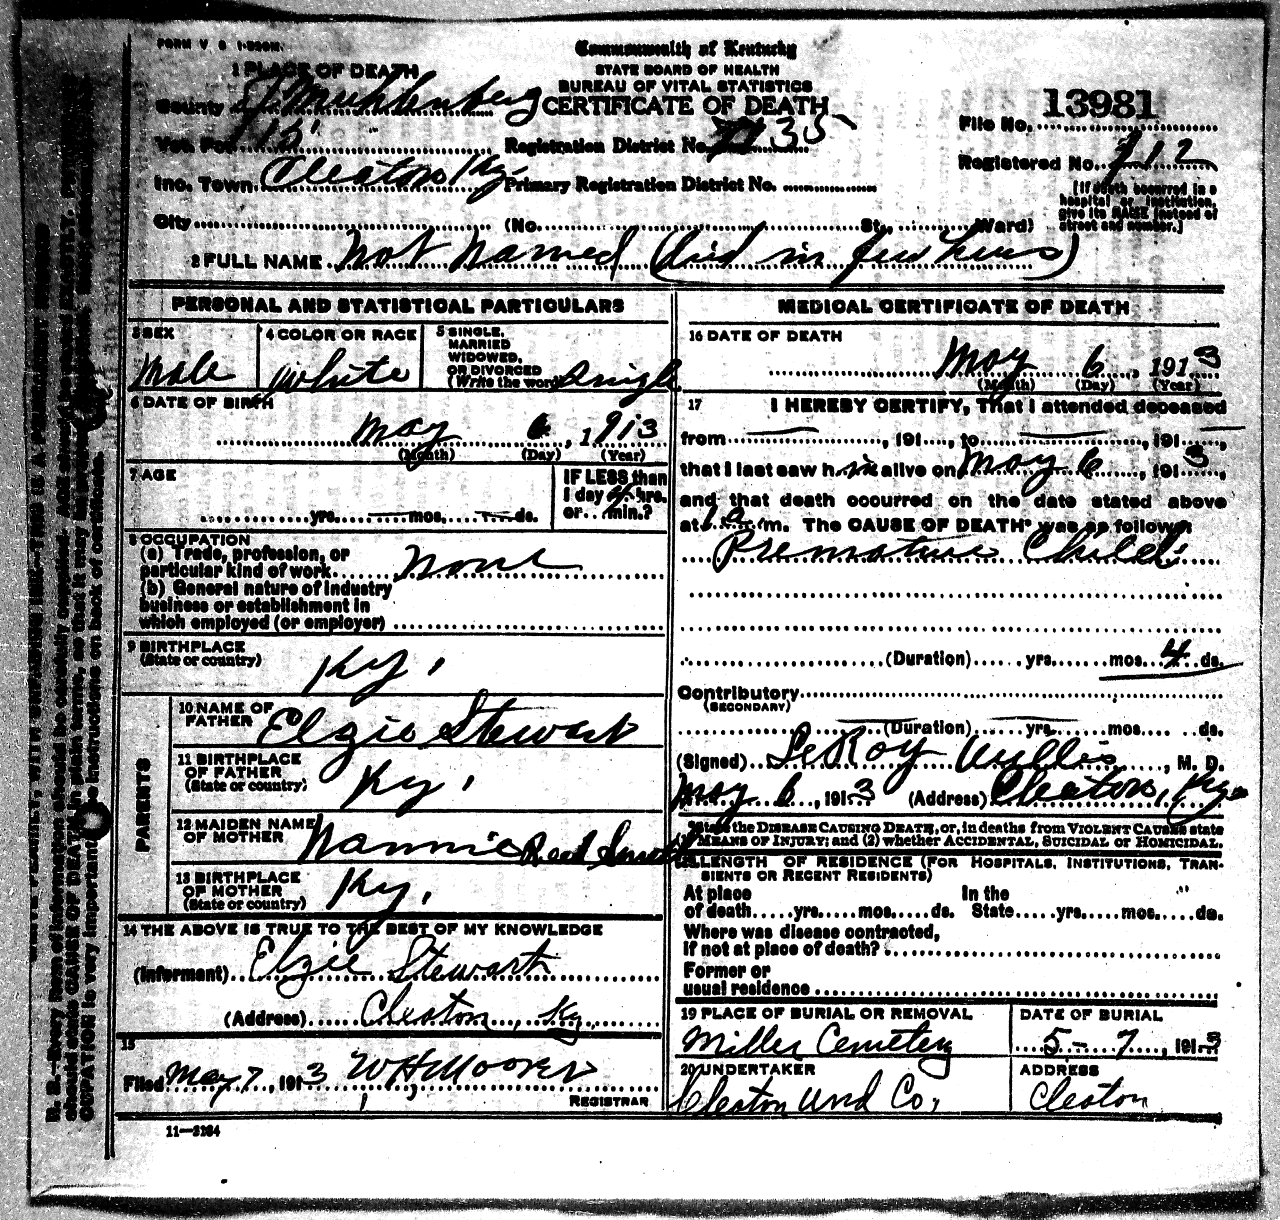 FORM V S 1-320M.
Commonwealth of Kentucky
STATE BOARD OF HEALTH
BUREAU OF VITAL STATISTICS
CERTIFICATE OF DEATH
1 PLACE OF DEATH
County Muhlenberg
File No. 13981
Vot. Pct. 15
Registration District No. 35
Inc. Town Cleaton Ky.
Primary Registration District No.
Registered No. 112
[If death occurred in a hospital or institution, give its NAME instead of street and number.]
City (No. St., Ward)
2 FULL NAME Not Named (died in few hours)
PERSONAL AND STATISTICAL PARTICULARS
3 SEX
Male
4 COLOR OR RACE
White
5 SINGLE, MARRIED WIDOWED, OR DIVORCED (Write the word) Single
6 DATE OF BIRTH
May 6, 1913
(Month) (Day) (Year)
7 AGE
yrs. mos. ds.
IF LESS than 1 day hrs. or min.?
8 OCCUPATION
(a) Trade, profession, or particular kind of work None
(b) General nature of industry business or establishment in which employed (or employer)
9 BIRTHPLACE (State or country) Ky.
PARENTS
10 NAME OF FATHER Elzie Stewart
11 BIRTHPLACE OF FATHER (State or country) Ky.
12 MAIDEN NAME OF MOTHER Nannie
13 BIRTHPLACE OF MOTHER (State or country) Ky.
14 THE ABOVE IS TRUE TO THE BEST OF MY KNOWLEDGE
(Informant) Elzie Stewart
(Address) Cleaton, Ky.
15
Filed May 7, 1913 W H Moore
REGISTRAR
11—3184
MEDICAL CERTIFICATE OF DEATH
16 DATE OF DEATH
May 6, 1913
(Month) (Day) (Year)
17 I HEREBY CERTIFY, That I attended deceased
from , 191 , to , 191 ,
that I last saw him alive on May 6, 1913,
and that death occurred on the date stated above
at m. The CAUSE OF DEATH* was as follows:
Premature Child
(Duration) yrs. mos. 4 ds.
Contributory
(SECONDARY)
(Duration) yrs. mos. ds.
(Signed) LeRoy Willis, M. D.
May 6, 1913 (Address) Cleaton, Ky
*State the DISEASE CAUSING DEATH, or, in deaths from VIOLENT CAUSES state MEANS OF INJURY; and (2) whether ACCIDENTAL, SUICIDAL OR HOMICIDAL.
18 LENGTH OF RESIDENCE (FOR HOSPITALS, INSTITUTIONS, TRANSIENTS OR RECENT RESIDENTS)
At place of death yrs. mos. ds. In the State yrs. mos. ds.
Where was disease contracted, if not at place of death?
Former or usual residence
19 PLACE OF BURIAL OR REMOVAL
Miller Cemetery
DATE OF BURIAL
5-7, 1913
20 UNDERTAKER
Cleaton Und Co,
ADDRESS
Cleaton